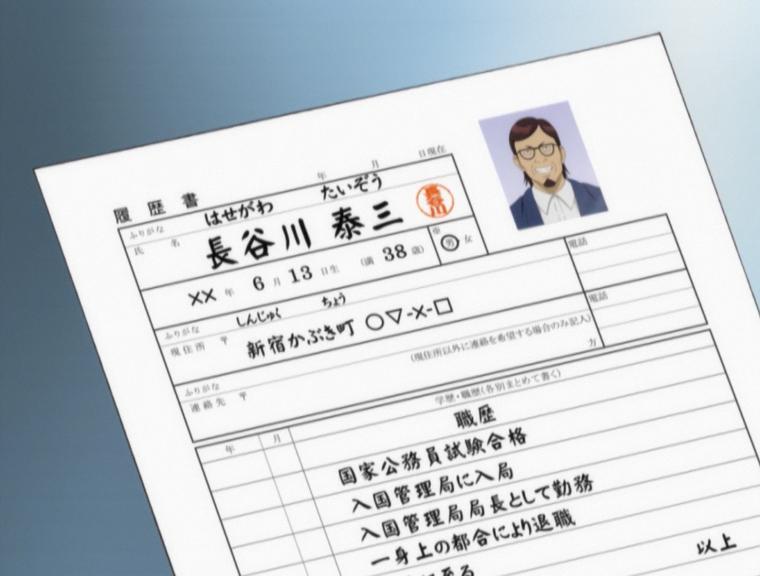 年 月 日現在
履歴書
ふりがな はせがわ たいぞう
氏名 長谷川 泰三 長谷川
×× 年 6 月 13 日生 (満 38 歳) ※ 男 女
ふりがな しんじゅく ちょう 電話
現住所 〒 新宿かぶき町 ○▽-×-□
ふりがな 電話
連絡先 〒 (現住所以外に連絡を希望する場合のみ記入)
方
年 月 学歴・職歴(各別まとめて書く)
職歴
国家公務員試験合格
入国管理局に入局
入国管理局局長として勤務
一身上の都合により退職
至る
以上